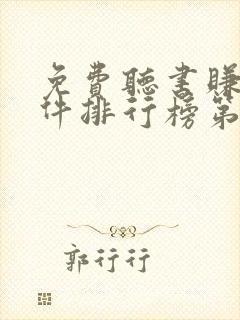 免費聽書賺
件排行榜第
郭行行